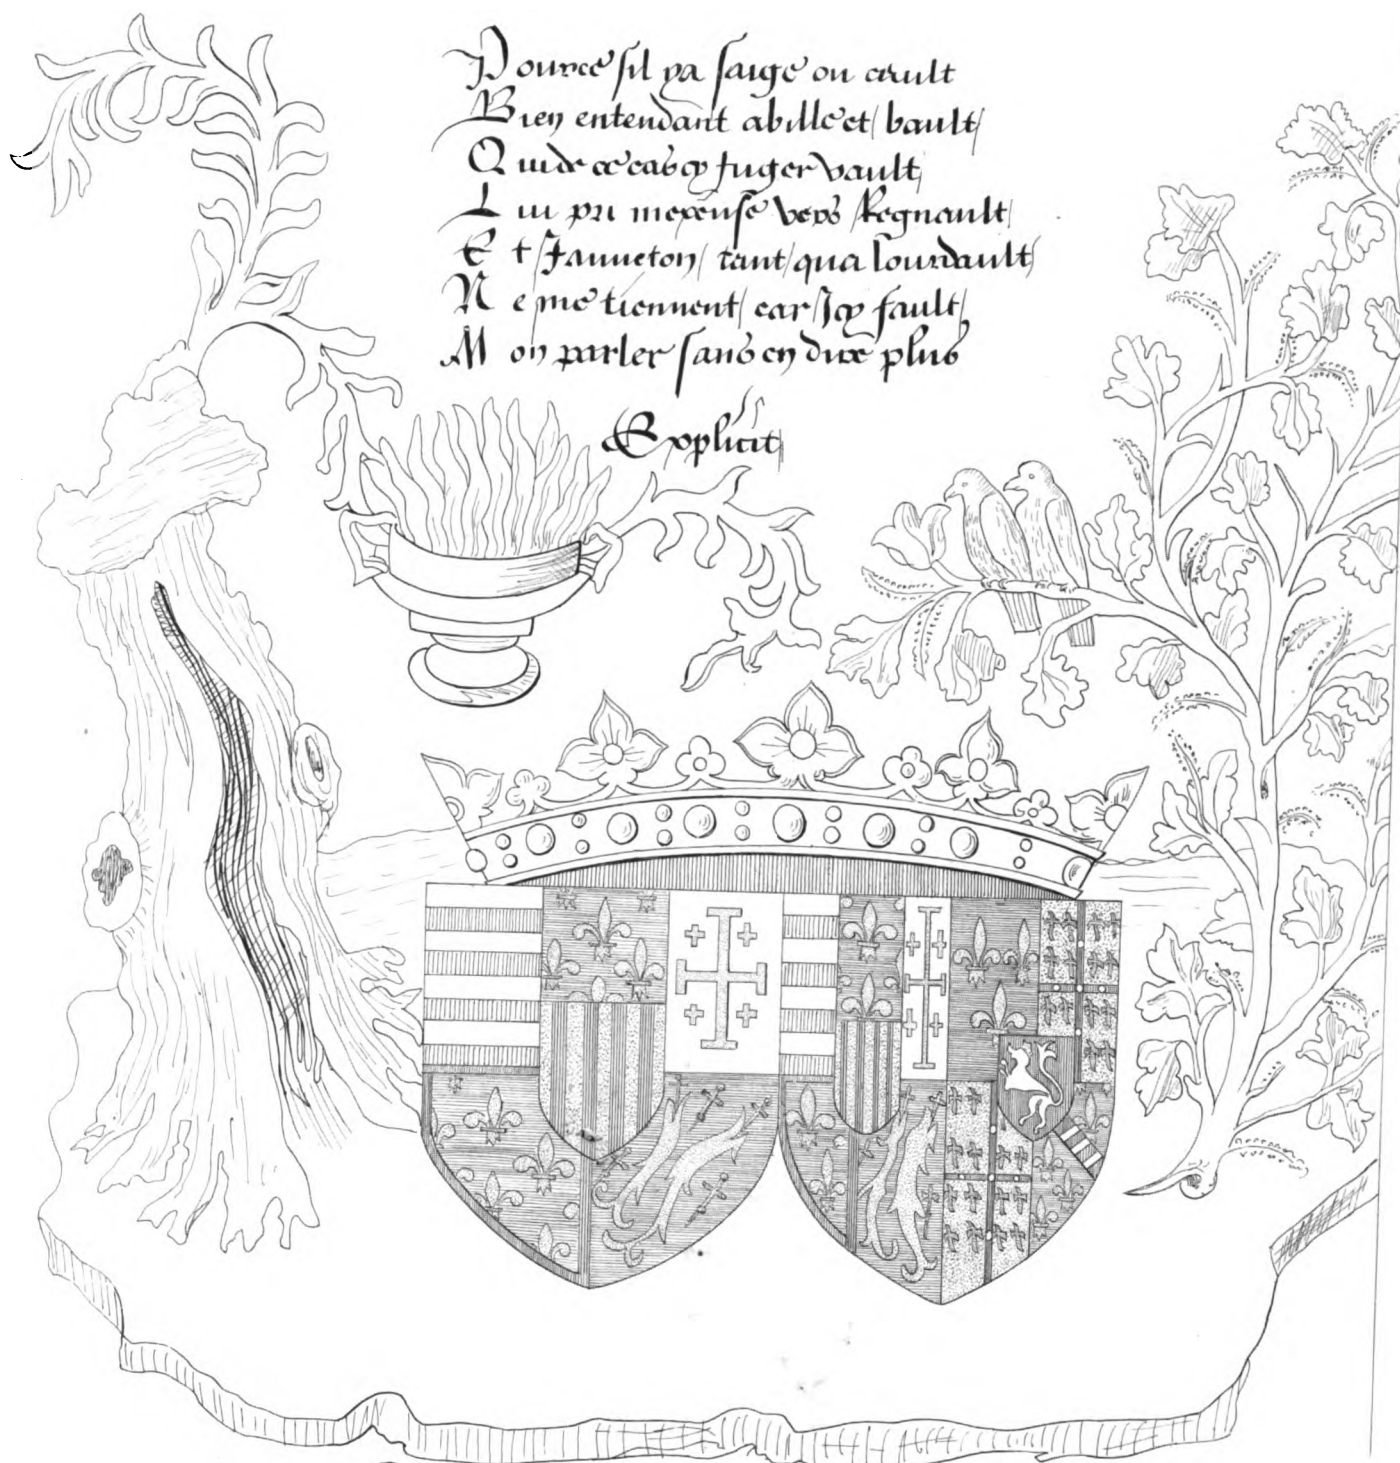 Pource sil ya saige ou cault
Bien entendant abille et bault
Qui de ce cas cy juger vault
Lui pri mexcuse vers Regnault
Et Janneton tant qua lourdault
Ne me tiennent car Icy fault
Mon parler sans en dire plus
Explicit